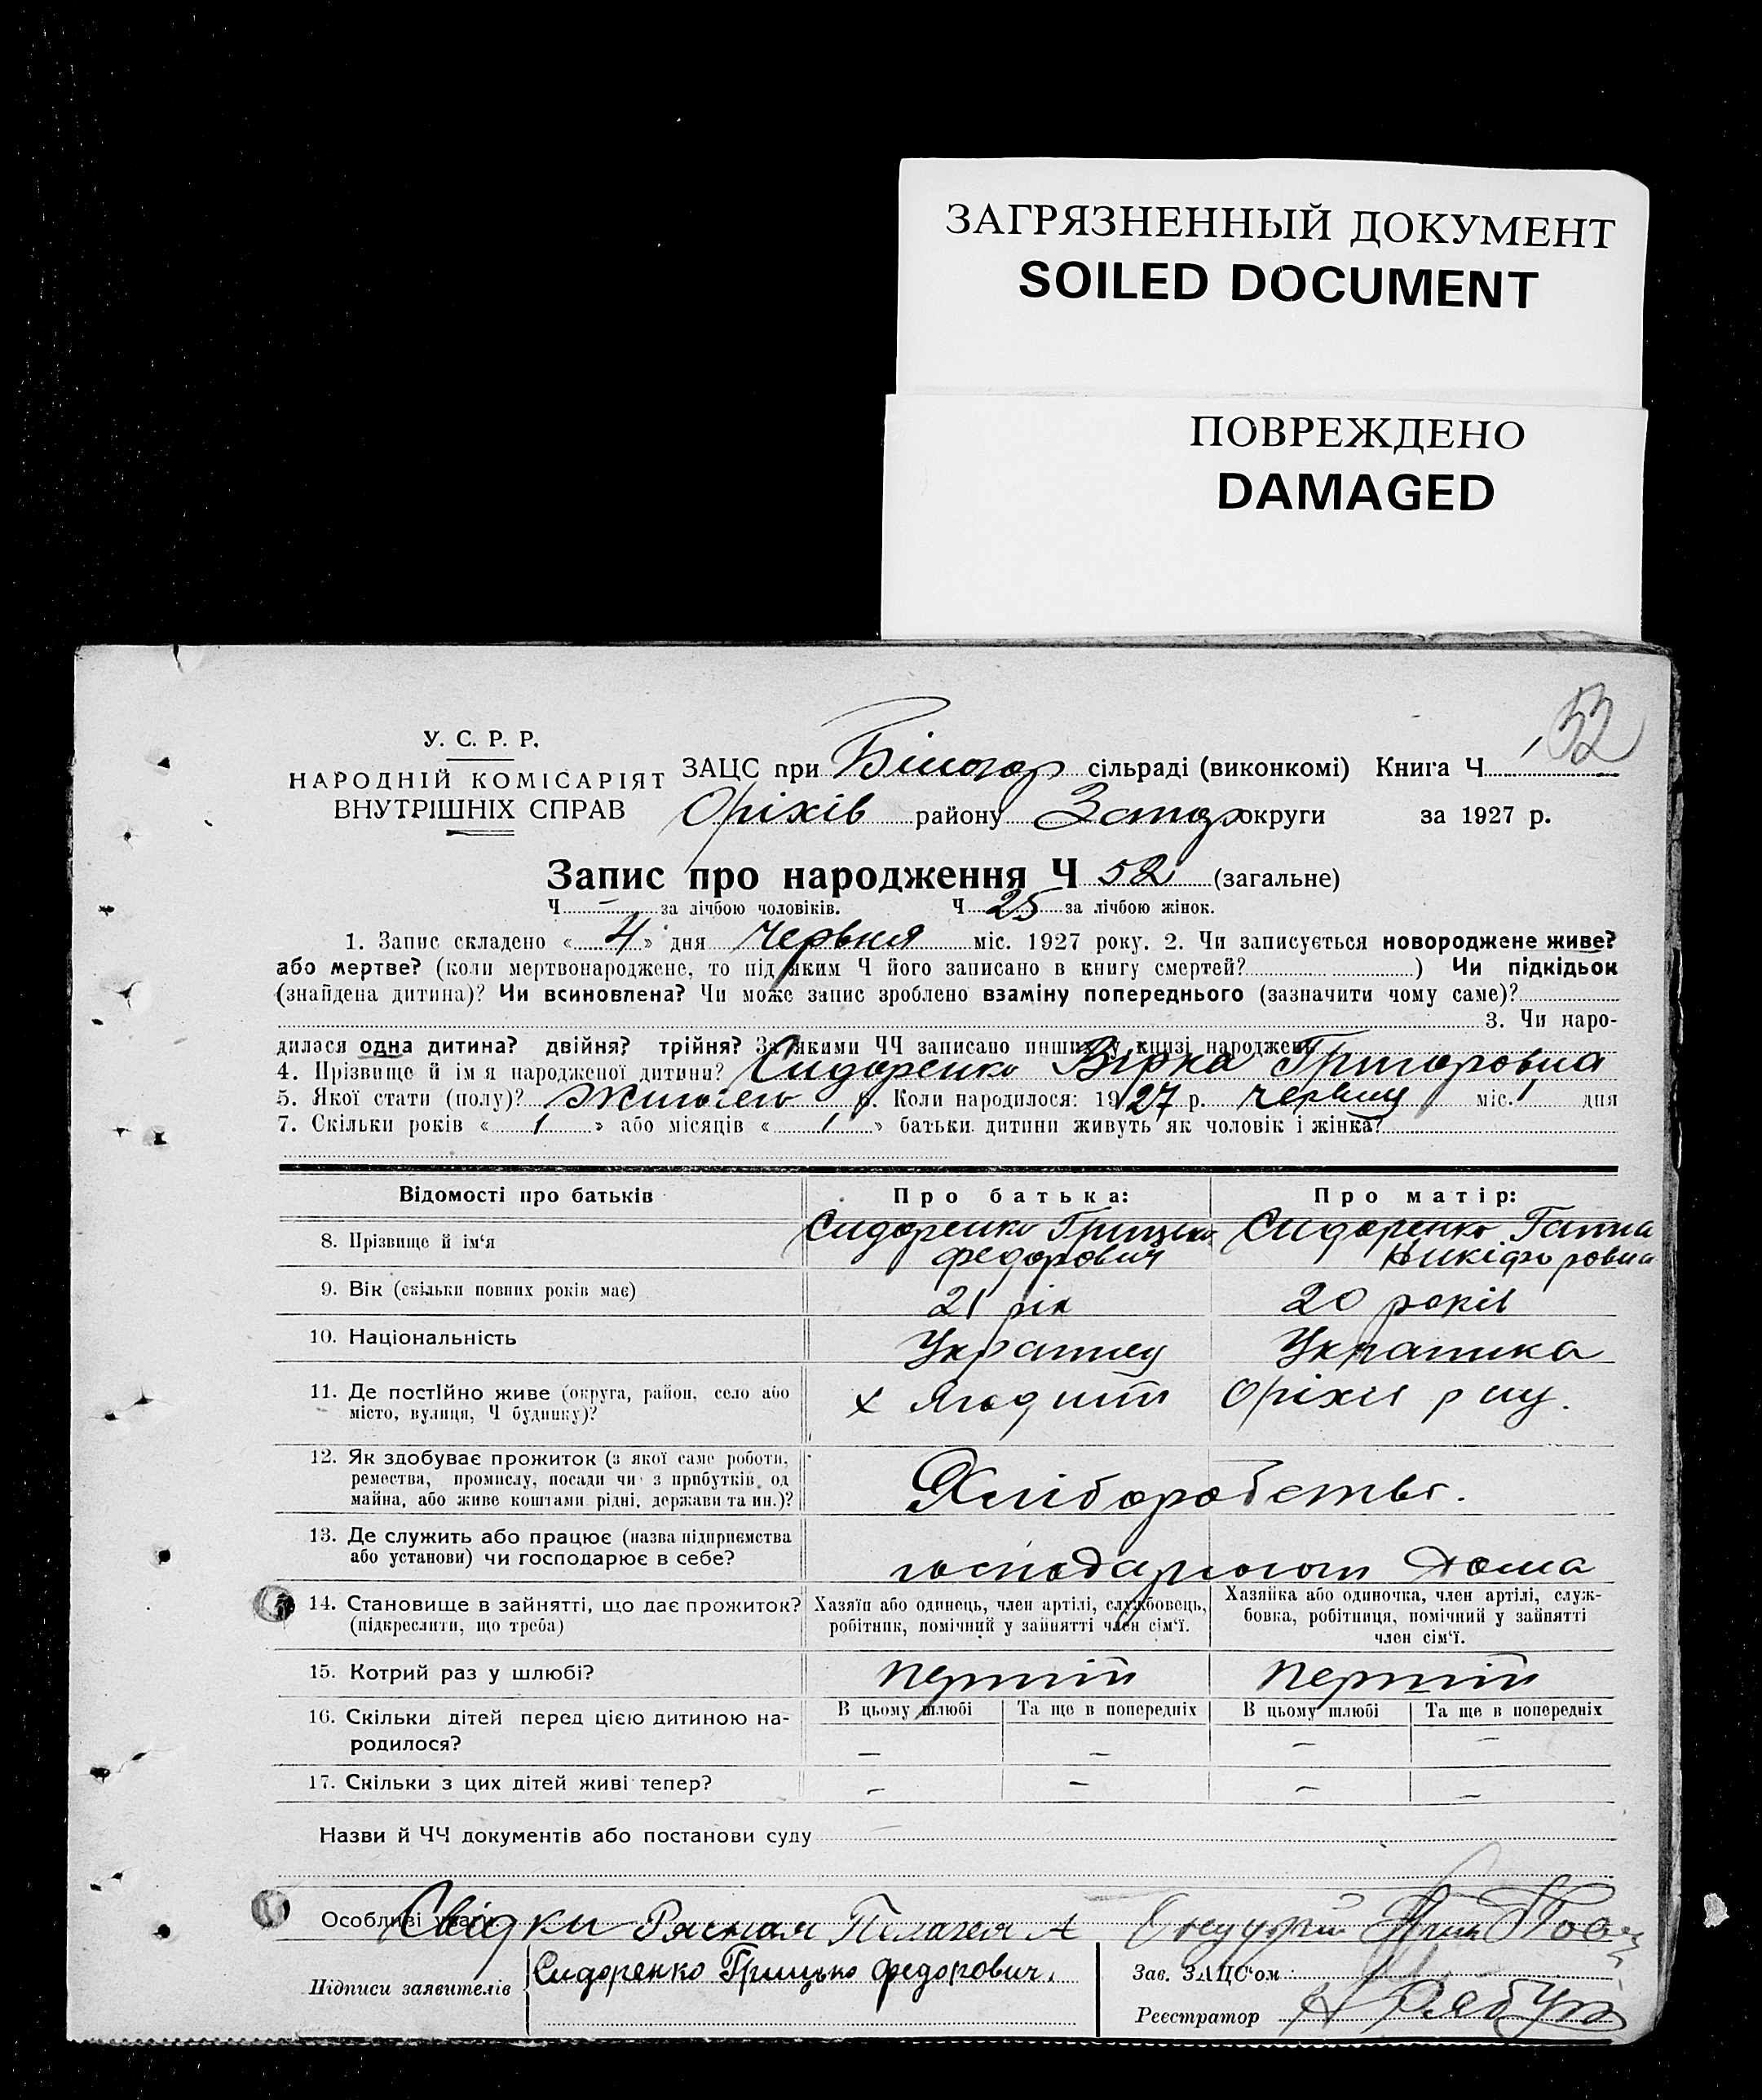 ЗАГРЯЗНЕННЫЙ ДОКУМЕНТ
SOILED DOCUMENT
ПОВРЕЖДЕНО
DAMAGED
52
У. С. Р. Р.
НАРОДНІЙ КОМІСАРІЯТ
ВНУТРІШНІХ СПРАВ
ЗАЦС при Білогор сільраді (виконкомі) Книга Ч
Оріхів району Запор округи за 1927 р.
Запис про народження Ч 52 (загальне)
Ч — за лічбою чоловіків. Ч 25 за лічбою жінок.
1. Запис складено « 4 » дня Червня міс. 1927 року. 2. Чи записується новороджене живе?
або мертве? (коли мертвонароджене, то під яким Ч його записано в книгу смертей? ) Чи підкідьок
(знайдена дитина)? Чи всиновлена? Чи може запис зроблено взаміну попереднього (зазначити чому саме)?
3. Чи наро-
дилася одна дитина? двійня? трійня? За якими ЧЧ записано инших у книзі народжень
4. Прізвище й ім'я народженої дитини? Сидоренко Вірка Григоровна
5. Якої стати (полу)? 6. Коли народилося: 1927 р. червня міс. 1 дня
7. Скільки років « 1 » або місяців « 1 » батьки дитини живуть як чоловік і жінка?
Відомості про батьків Про батька: Про матір:
8. Прізвище й ім'я Сидоренко Грицько Федорович Сидоренко Ганна Никіфоровна
9. Вік (скільки повних років має) 21 рік 20 років
10. Національність Українец Українка
11. Де постійно живе (округа, район, село або місто, вулиця, Ч будинку)? х Оріхів
12. Як здобуває прожиток (з якої саме роботи, ремества, промислу, посади чи з прибутків од майна, або живе коштами рідні, держави та ин.)? Хліборобство.
13. Де служить або працює (назва підприємства або установи) чи господарює в себе? господарюють дома
14. Становище в зайнятті, що дає прожиток? (підкреслити, що треба) Хазяїн або одинець, член артілі, службовець, робітник, помічний у зайнятті член сім'ї. Хазяйка або одиночка, член артілі, служ-бовка, робітниця, помічний у зайнятті член сім'ї.
15. Котрий раз у шлюбі? перший перший
16. Скільки дітей перед цією дитиною на-родилося? В цьому шлюбі — Та ще в попередніх — В цьому шлюбі — Та ще в попередніх —
17. Скільки з цих дітей живі тепер? — — — —
Назви й ЧЧ документів або постанови суду
Особливі уваги Свідки Рясная Пелагея
Підписи заявителів Сидоренко Грицько Федорович.
Зав. ЗАЦС'ом
Реєстратор